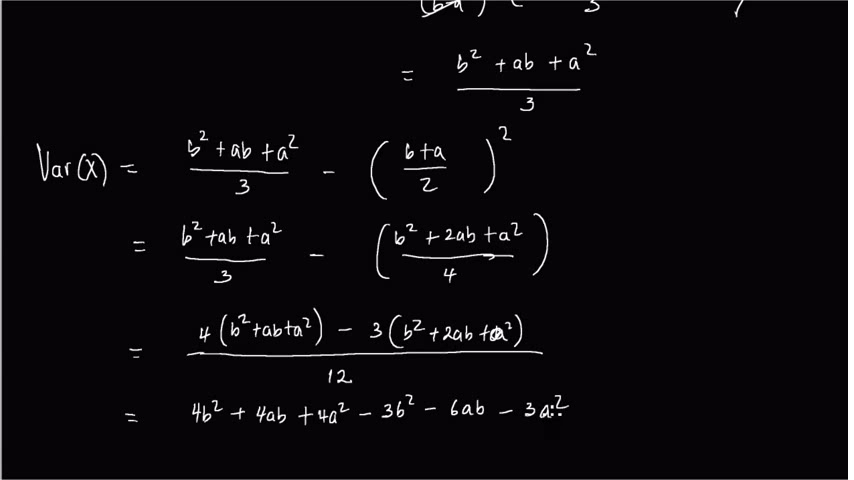 (b-a) ( 3
= b² + ab + a² / 3
Var(X) = b² + ab + a² / 3 - ( b+a / 2 )²
= b² + ab + a² / 3 - ( b² + 2ab + a² / 4 )
= 4(b² + ab + a²) - 3(b² + 2ab + a²) / 12
= 4b² + 4ab + 4a² - 3b² - 6ab - 3a²